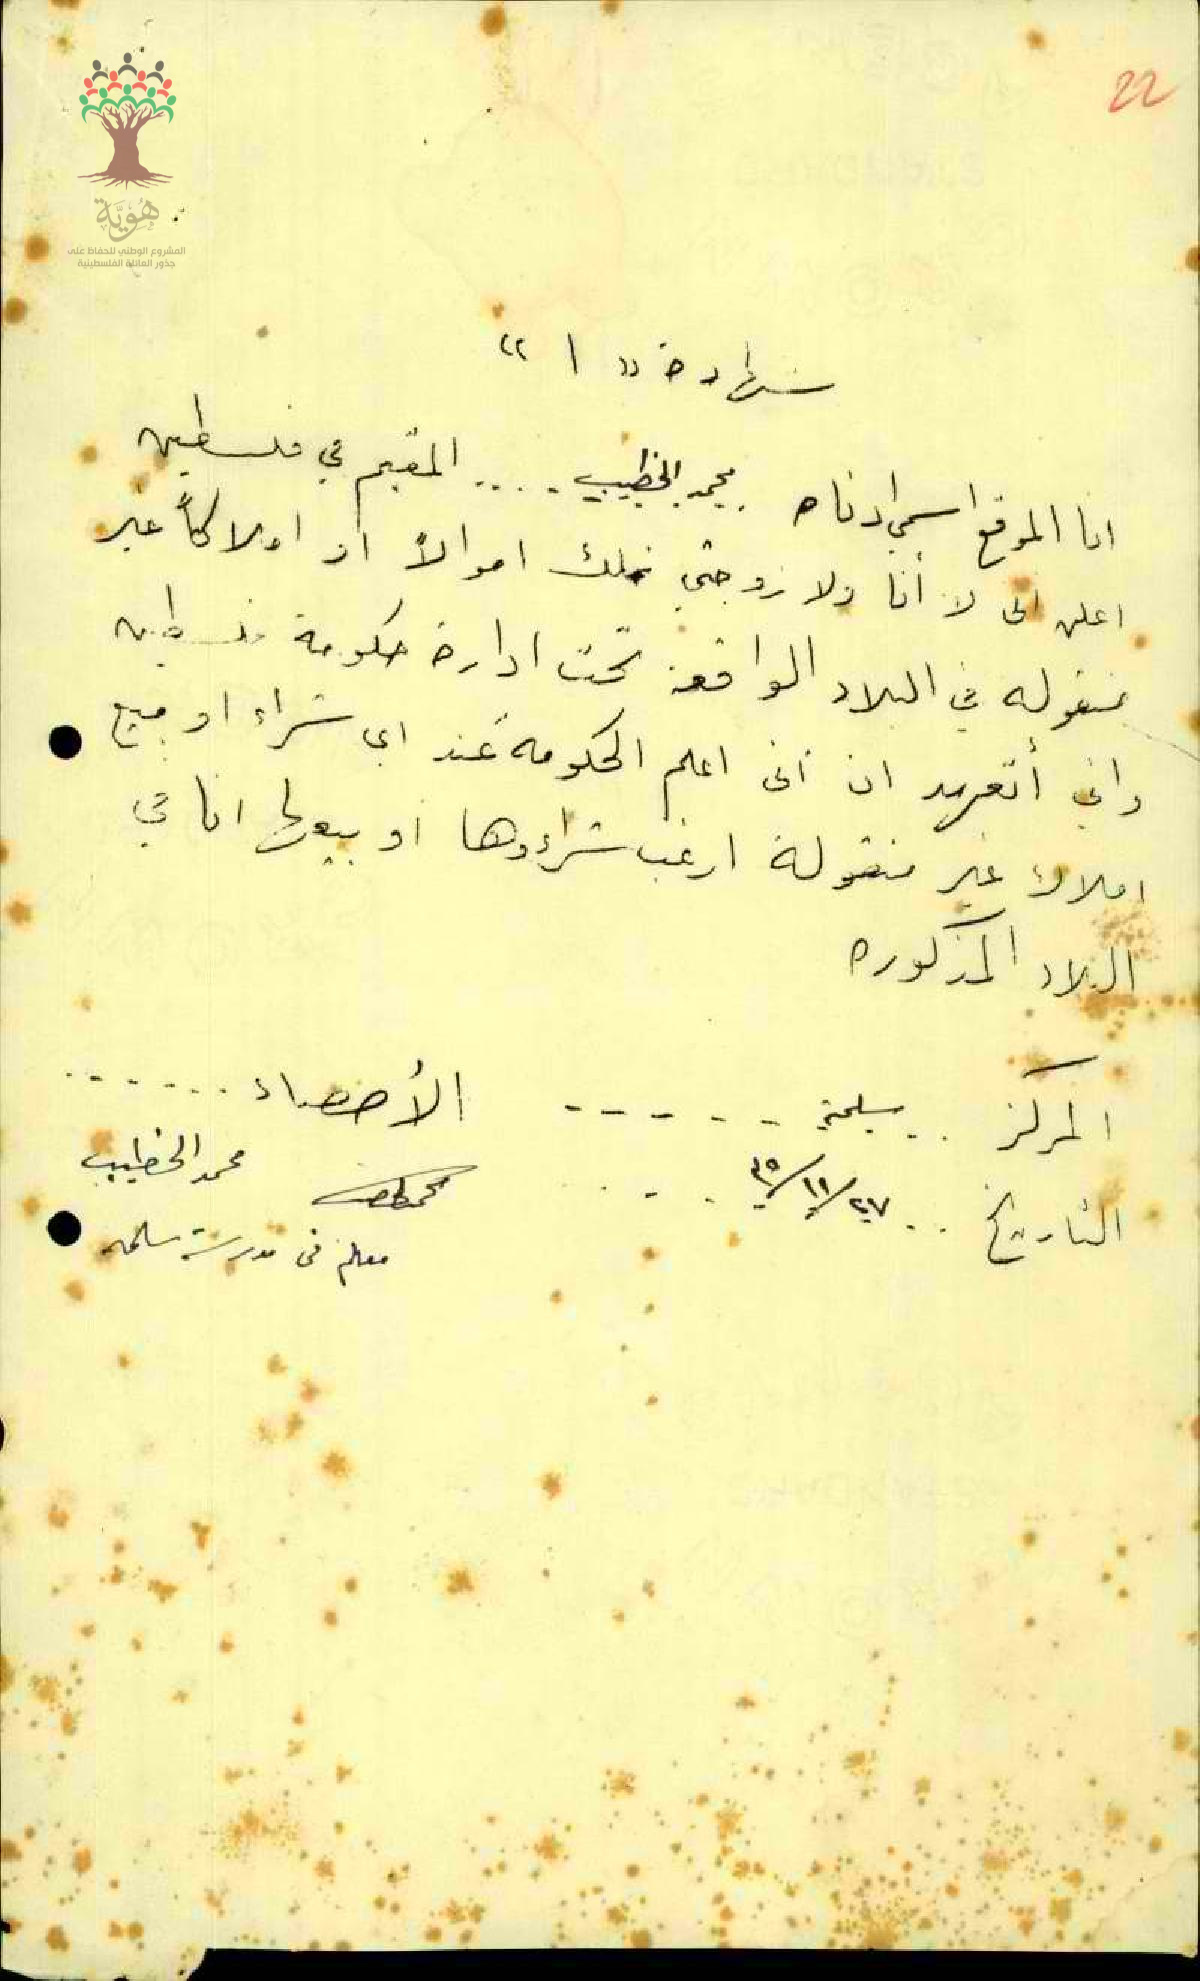 22
هُوِيَّة
المشروع الوطني للحفاظ على
جذور العائلة الفلسطينية
شهادة « ١ »
انا الموقع اسمي ادناه محمد الخطيب .... المقيم في فلسطين
اعلن اني لا أنا ولا زوجتي نملك اموالاً او املاكاً غير
منقوله في البلاد الواقعة تحت ادارة حكومة فلسطين
واني أتعهد ان اعلم الحكومة عند اي شراء او مبيع
املاك غير منقولة ارغب شراءها او بيعها انا في
البلاد المذكوره
المركز .. سلمة ----- الأمضاء ......
محمد الخطيب
التاريخ ... ٢٧/١١/٣٥
معلم في مدرسة سلمه